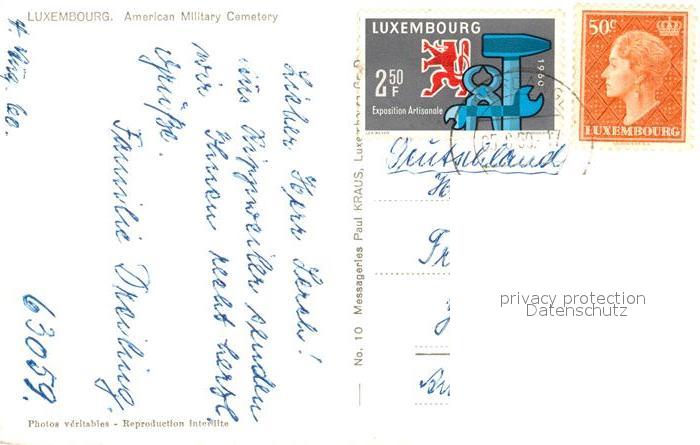 LUXEMBOURG. American Military Cemetery
4. Aug. 60.
Lieber Herr Hersch!
aus Dippweiler senden
wir Ihnen recht herzl.
Grüße.
Familie Dreiling
63059.
Photos véritables - Reproduction interdite
No. 10 Messageries Paul KRAUS, Luxembourg
LUXEMBOURG
2 50 F
1960
Exposition Artisanale
50 c
LUXEMBOURG
Deutschland
H
Fr
privacy protection
Datenschutz